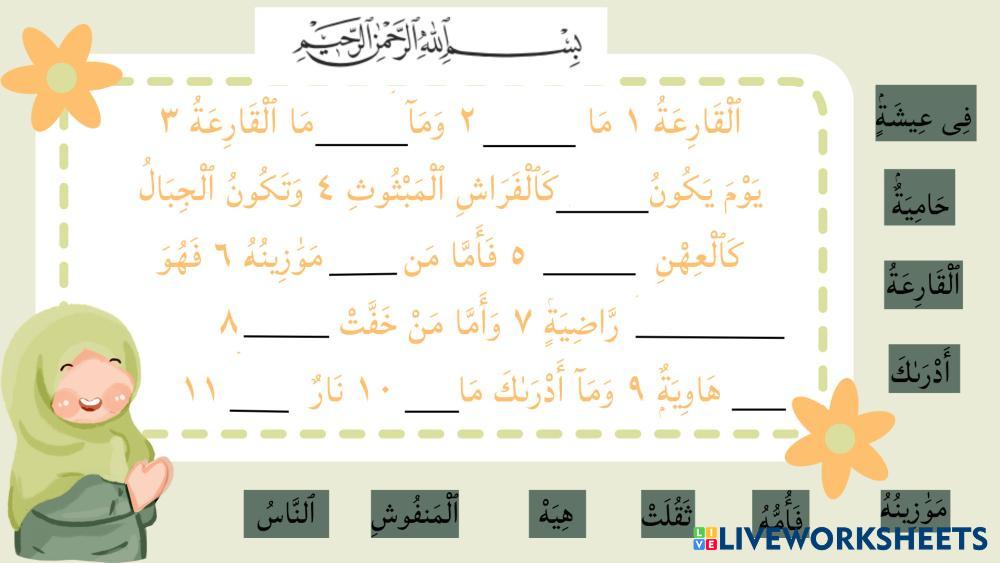 بِسْمِ ٱللَّهِ ٱلرَّحْمَٰنِ ٱلرَّحِيمِ
ٱلْقَارِعَةُ ١ مَا ______ ٢ وَمَآ ______ مَا ٱلْقَارِعَةُ ٣
يَوْمَ يَكُونُ ______ كَٱلْفَرَاشِ ٱلْمَبْثُوثِ ٤ وَتَكُونُ ٱلْجِبَالُ
كَٱلْعِهْنِ ______ ٥ فَأَمَّا مَن ______ مَوَٰزِينُهُۥ ٦ فَهُوَ
______ رَّاضِيَةٍ ٧ وَأَمَّا مَنْ خَفَّتْ ______ ٨
______ هَاوِيَةٌ ٩ وَمَآ أَدْرَىٰكَ مَا ______ ١٠ نَارٌ ______ ١١
فِى عِيشَةٍ
حَامِيَةٌۢ
ٱلْقَارِعَةُ
أَدْرَىٰكَ
مَوَٰزِينُهُۥ
فَأُمُّهُۥ
ثَقُلَتْ
هِيَهْ
ٱلْمَنفُوشِ
ٱلنَّاسُ
LIVEWORKSHEETS